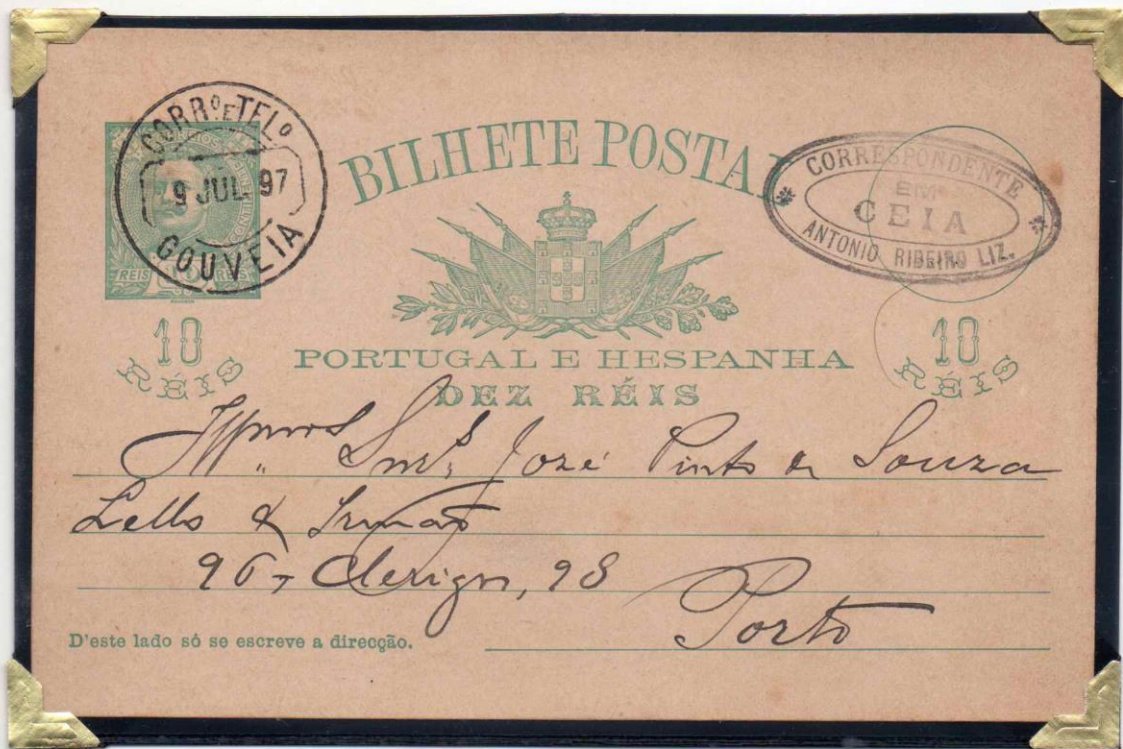 CORRº E TELº
9 JUL. 97
GOUVEIA
REIS
BILHETE POSTAL
CORRESPONDENTE
EM
CEIA
ANTONIO RIBEIRO LIZ.
10
RÉIS
10
RÉIS
PORTUGAL E HESPANHA
DEZ RÉIS
Illmos Snrs José Pinto de Souza
Lello & Irmão
96, Clerigos, 98
Porto
D'este lado só se escreve a direcção.